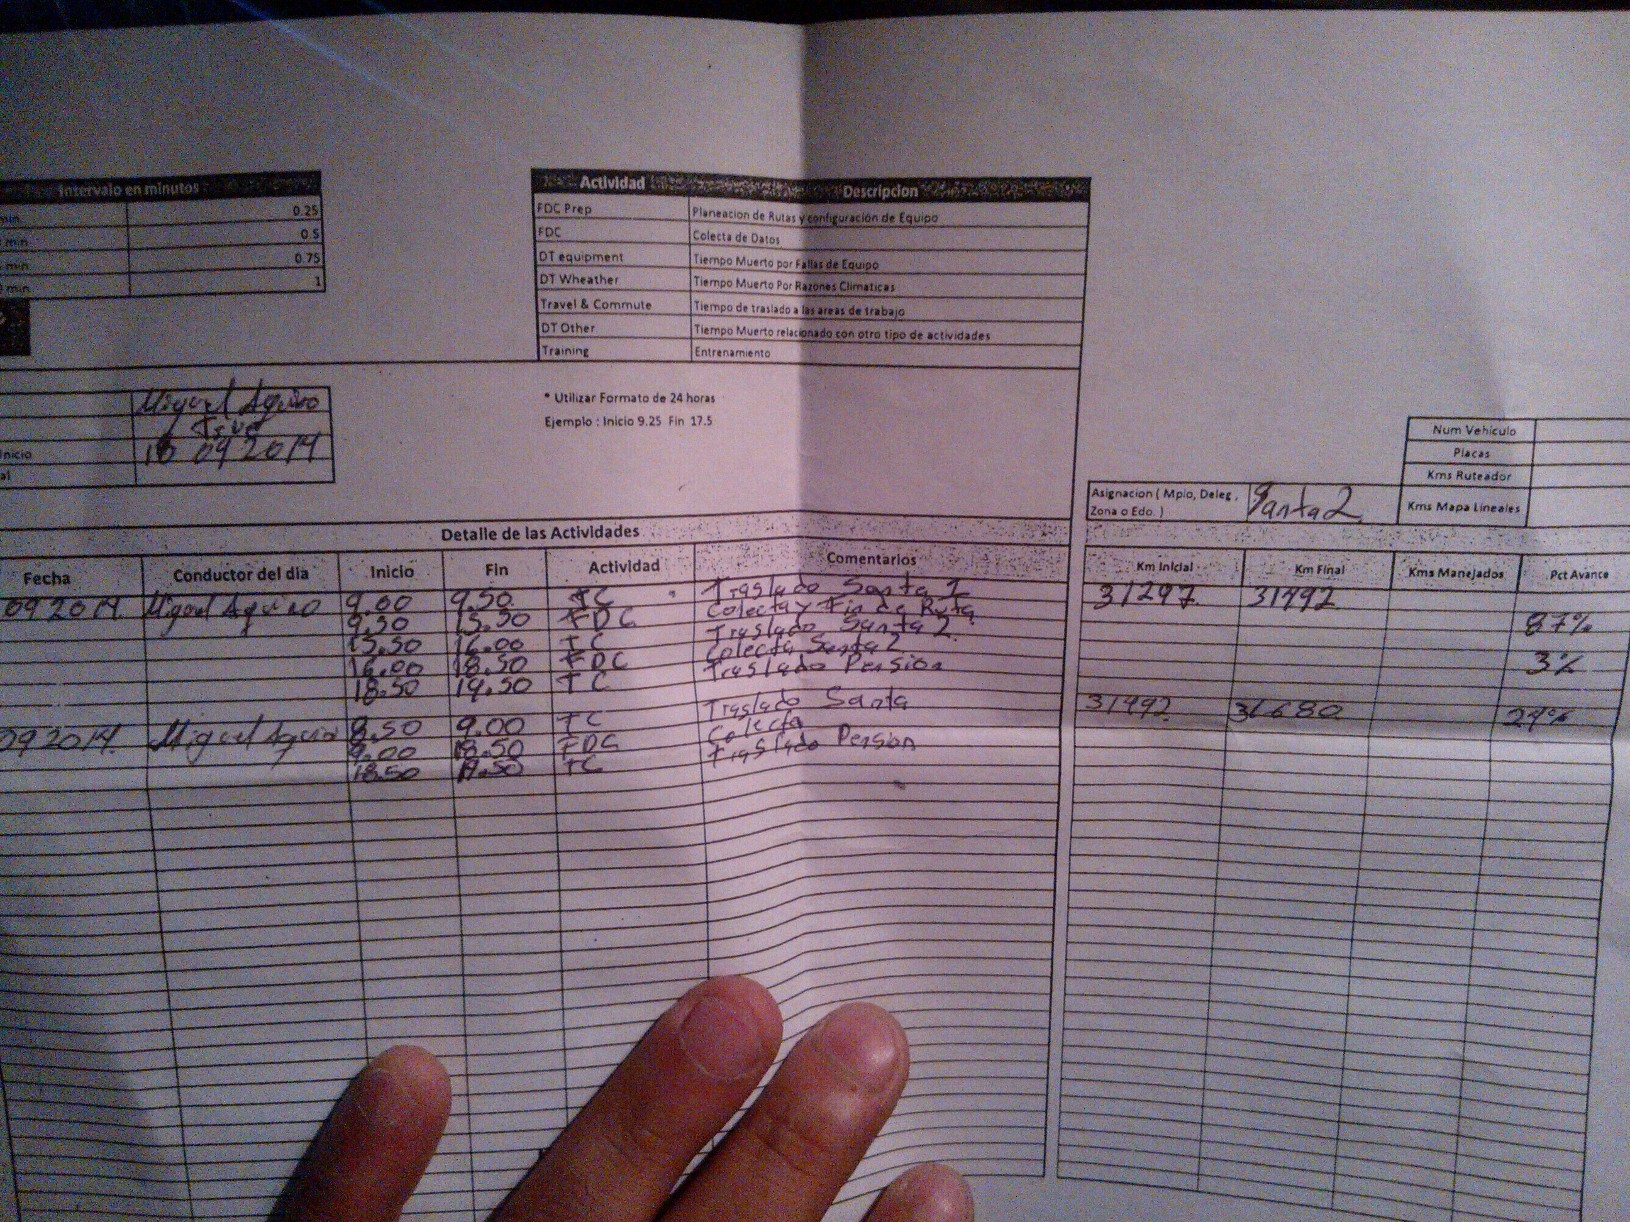 Intervalo en minutos
min 0.25
min 0.5
min 0.75
min 1
Actividad Descripcion
FDC Prep Planeacion de Rutas y configuración de Equipo
FDC Colecta de Datos
DT equipment Tiempo Muerto por Fallas de Equipo
DT Wheather Tiempo Muerto Por Razones Climaticas
Travel & Commute Tiempo de traslado a las areas de trabajo
DT Other Tiempo Muerto relacionado con otro tipo de actividades
Training Entrenamiento
* Utilizar Formato de 24 horas
Ejemplo : Inicio 9.25 Fin 17.5
Miguel Aguiro
nicio 10 09 2014
al
Num Vehiculo
Placas
Kms Ruteador
Kms Mapa Lineales
Asignacion ( Mpio, Deleg , Santa 2
Zona o Edo. )
Detalle de las Actividades
Fecha Conductor del dia Inicio Fin Actividad Comentarios Km Inicial Km Final Kms Manejados Pct Avance
09 2014 Miguel Aguiro 9.00 9.50 TC Traslado Santa 1 31297 31492
9.50 15.50 FDC Colecta y Fin de Ruta 87%
15.50 16.00 TC Traslado Santa 2
16.00 18.50 FDC Colecta Santa 2 3%
18.50 19.50 TC Traslado Pension
09 2014 Miguel Aguiro 8.50 9.00 TC Traslado Santa 31492 31680 29%
9.00 18.50 FDC Colecta
18.50 19.50 TC Traslado Pension